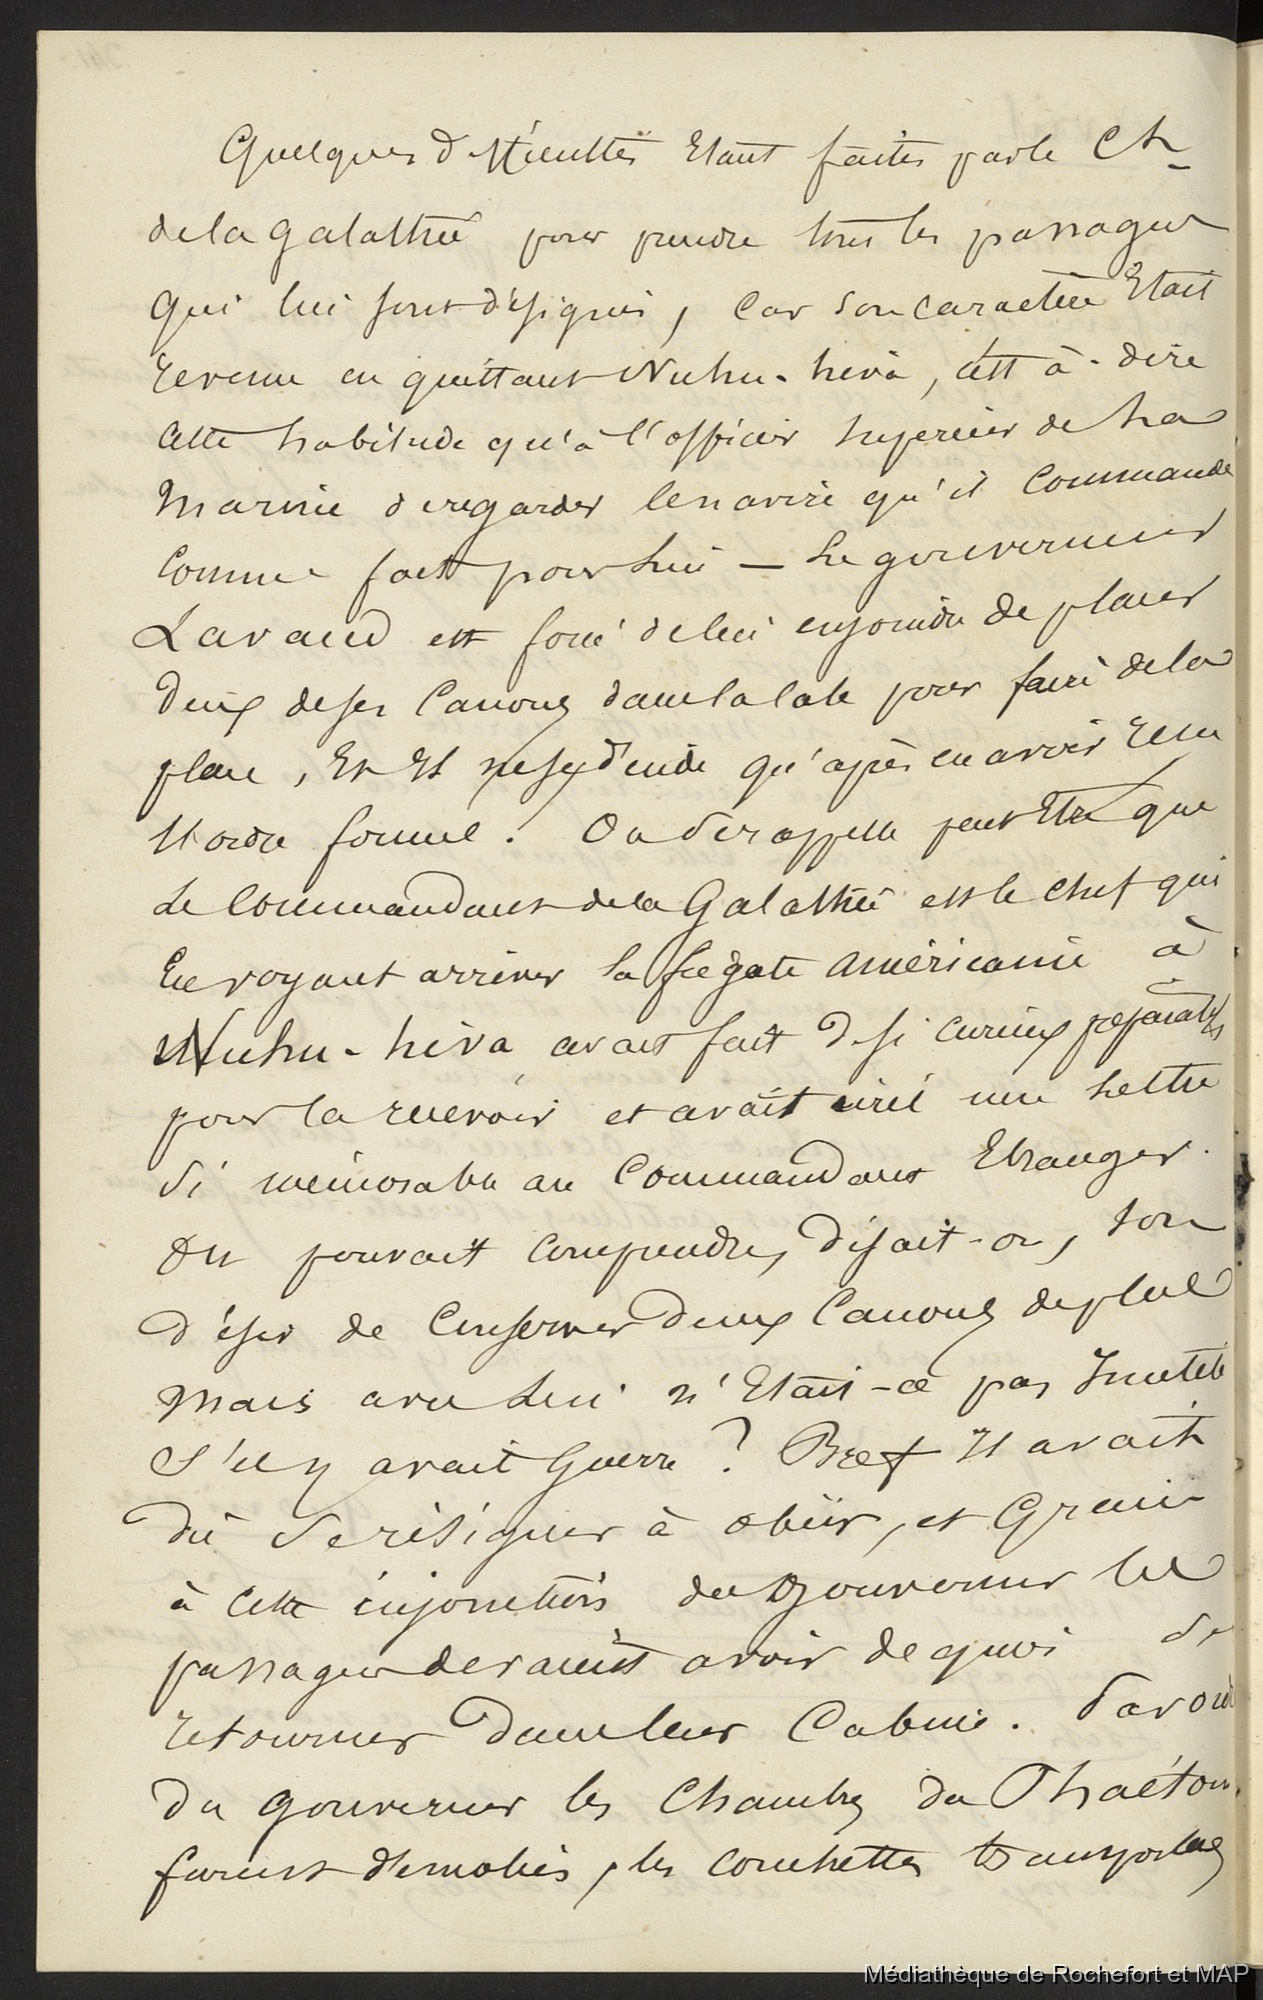 Quelques difficultés Etant faites par le Ct
de la Galathée pour prendre tous les passagers
qui lui sont désignés, Car son caractère Etait
revenu en quittant Nuhu-hiva, c'est à-dire
cette habitude qu'à l'officier superieur de la
Marine de regarder le navire qu'il Commande
Comme fait pour lui — Le gouverneur
Lavaud est forcé de lui enjoindre de placer
deux de ses Canons dans la cale pour faire de la
place, Et Il ne s'exécute qu'après en avoir reçu
l'ordre formel. On se rappelle peut Etre que
Le Commandant de la Galathée est le chef qui
En voyant arriver la frégate américaine à
Nuhu-hiva avait fait de si curieux préparatifs
pour la recevoir et avait écrit une Lettre
si mémorable au Commandant Etranger.
On pouvait comprendre, disait-on, son
désir de Conserver deux Canons de plus
Mais avec Lui n'Etait-ce pas Inutile
S'il y avait Guerre ? Bref Il avait
dû se résigner à obéir, et Grace
à cette injonction du Gouverneur les
passagers devaient avoir de quoi se
retourner dans leur Cabine. Par ordre
du gouverneur les Chambres du Phaéton
furent démolies, les couchettes transportées
Médiathèque de Rochefort et MAP